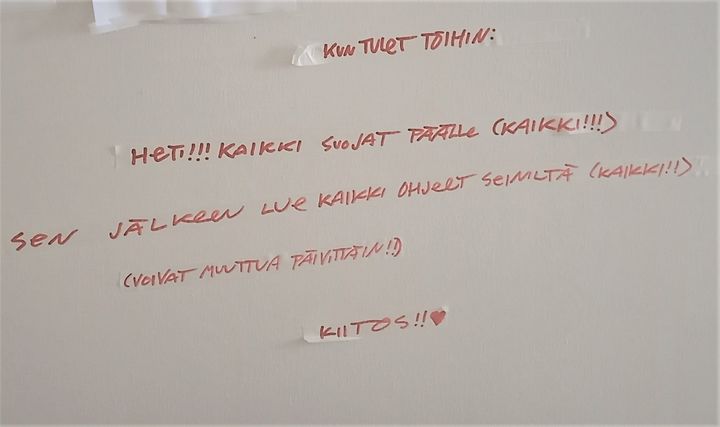 KUN TULET TÖIHIN:
HETI!!! KAIKKI SUOJAT PÄÄLLE (KAIKKI!!!)
SEN JÄLKEEN LUE KAIKKI OHJEET SEINILTÄ (KAIKKI!!)
(VOIVAT MUUTTUA PÄIVITTÄIN!!)
KIITOS!!♥